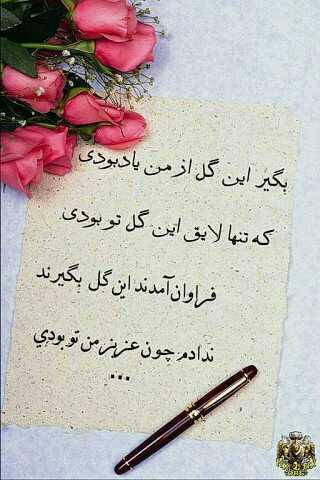 بگیر این گل از من یادبودی
که تنها لایق این گل تو بودی
فراوان آمدند این گل بگیرند
ندادم چون عزیز من تو بودي
...